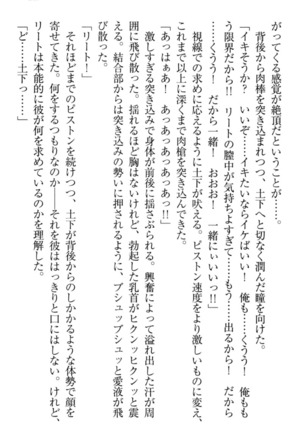 がってくる感覚が絶頂だということが……。
背後から肉棒を突き込まれつつ、土下へと切なく潤んだ瞳を向けた。
「イキそうか？　いいぞ……イキたいならイケばいい！　俺も……くうう！　俺もも
う限界だから!!　リートの膣中が気持ちよすぎて……もう……出るから！　だから
……くうう！　だから一緒！　おおお！　一緒にぃいいっ!!」
視線での求めに応えるように土下が吠える。ピストン速度をより激しいものに変え、
これまで以上に深くまで肉槍を突き込んできた。
「あっはぁあ！　あっあっあっあっあっ!!」
激しすぎる突き込みで身体が前後に揺さぶられる。興奮によって溢れ出した汗が周
囲に飛び散った。揺れるほど胸はないけれど、勃起した乳首がヒクンヒクンッと震
える。結合部からは突き込みの勢いに押されるように、ブシュッブシュッと愛液が飛
び散った。
「リート！」
それほどまでのピストンを続けつつ、土下が背後からのしかかるような体勢で顔を
寄せてきた。何をするつもりなのか――それを彼ははっきりと口にはしない。けれど、
リートは本能的に彼が何を求めているのかを理解した。
「ど……土下っ……」